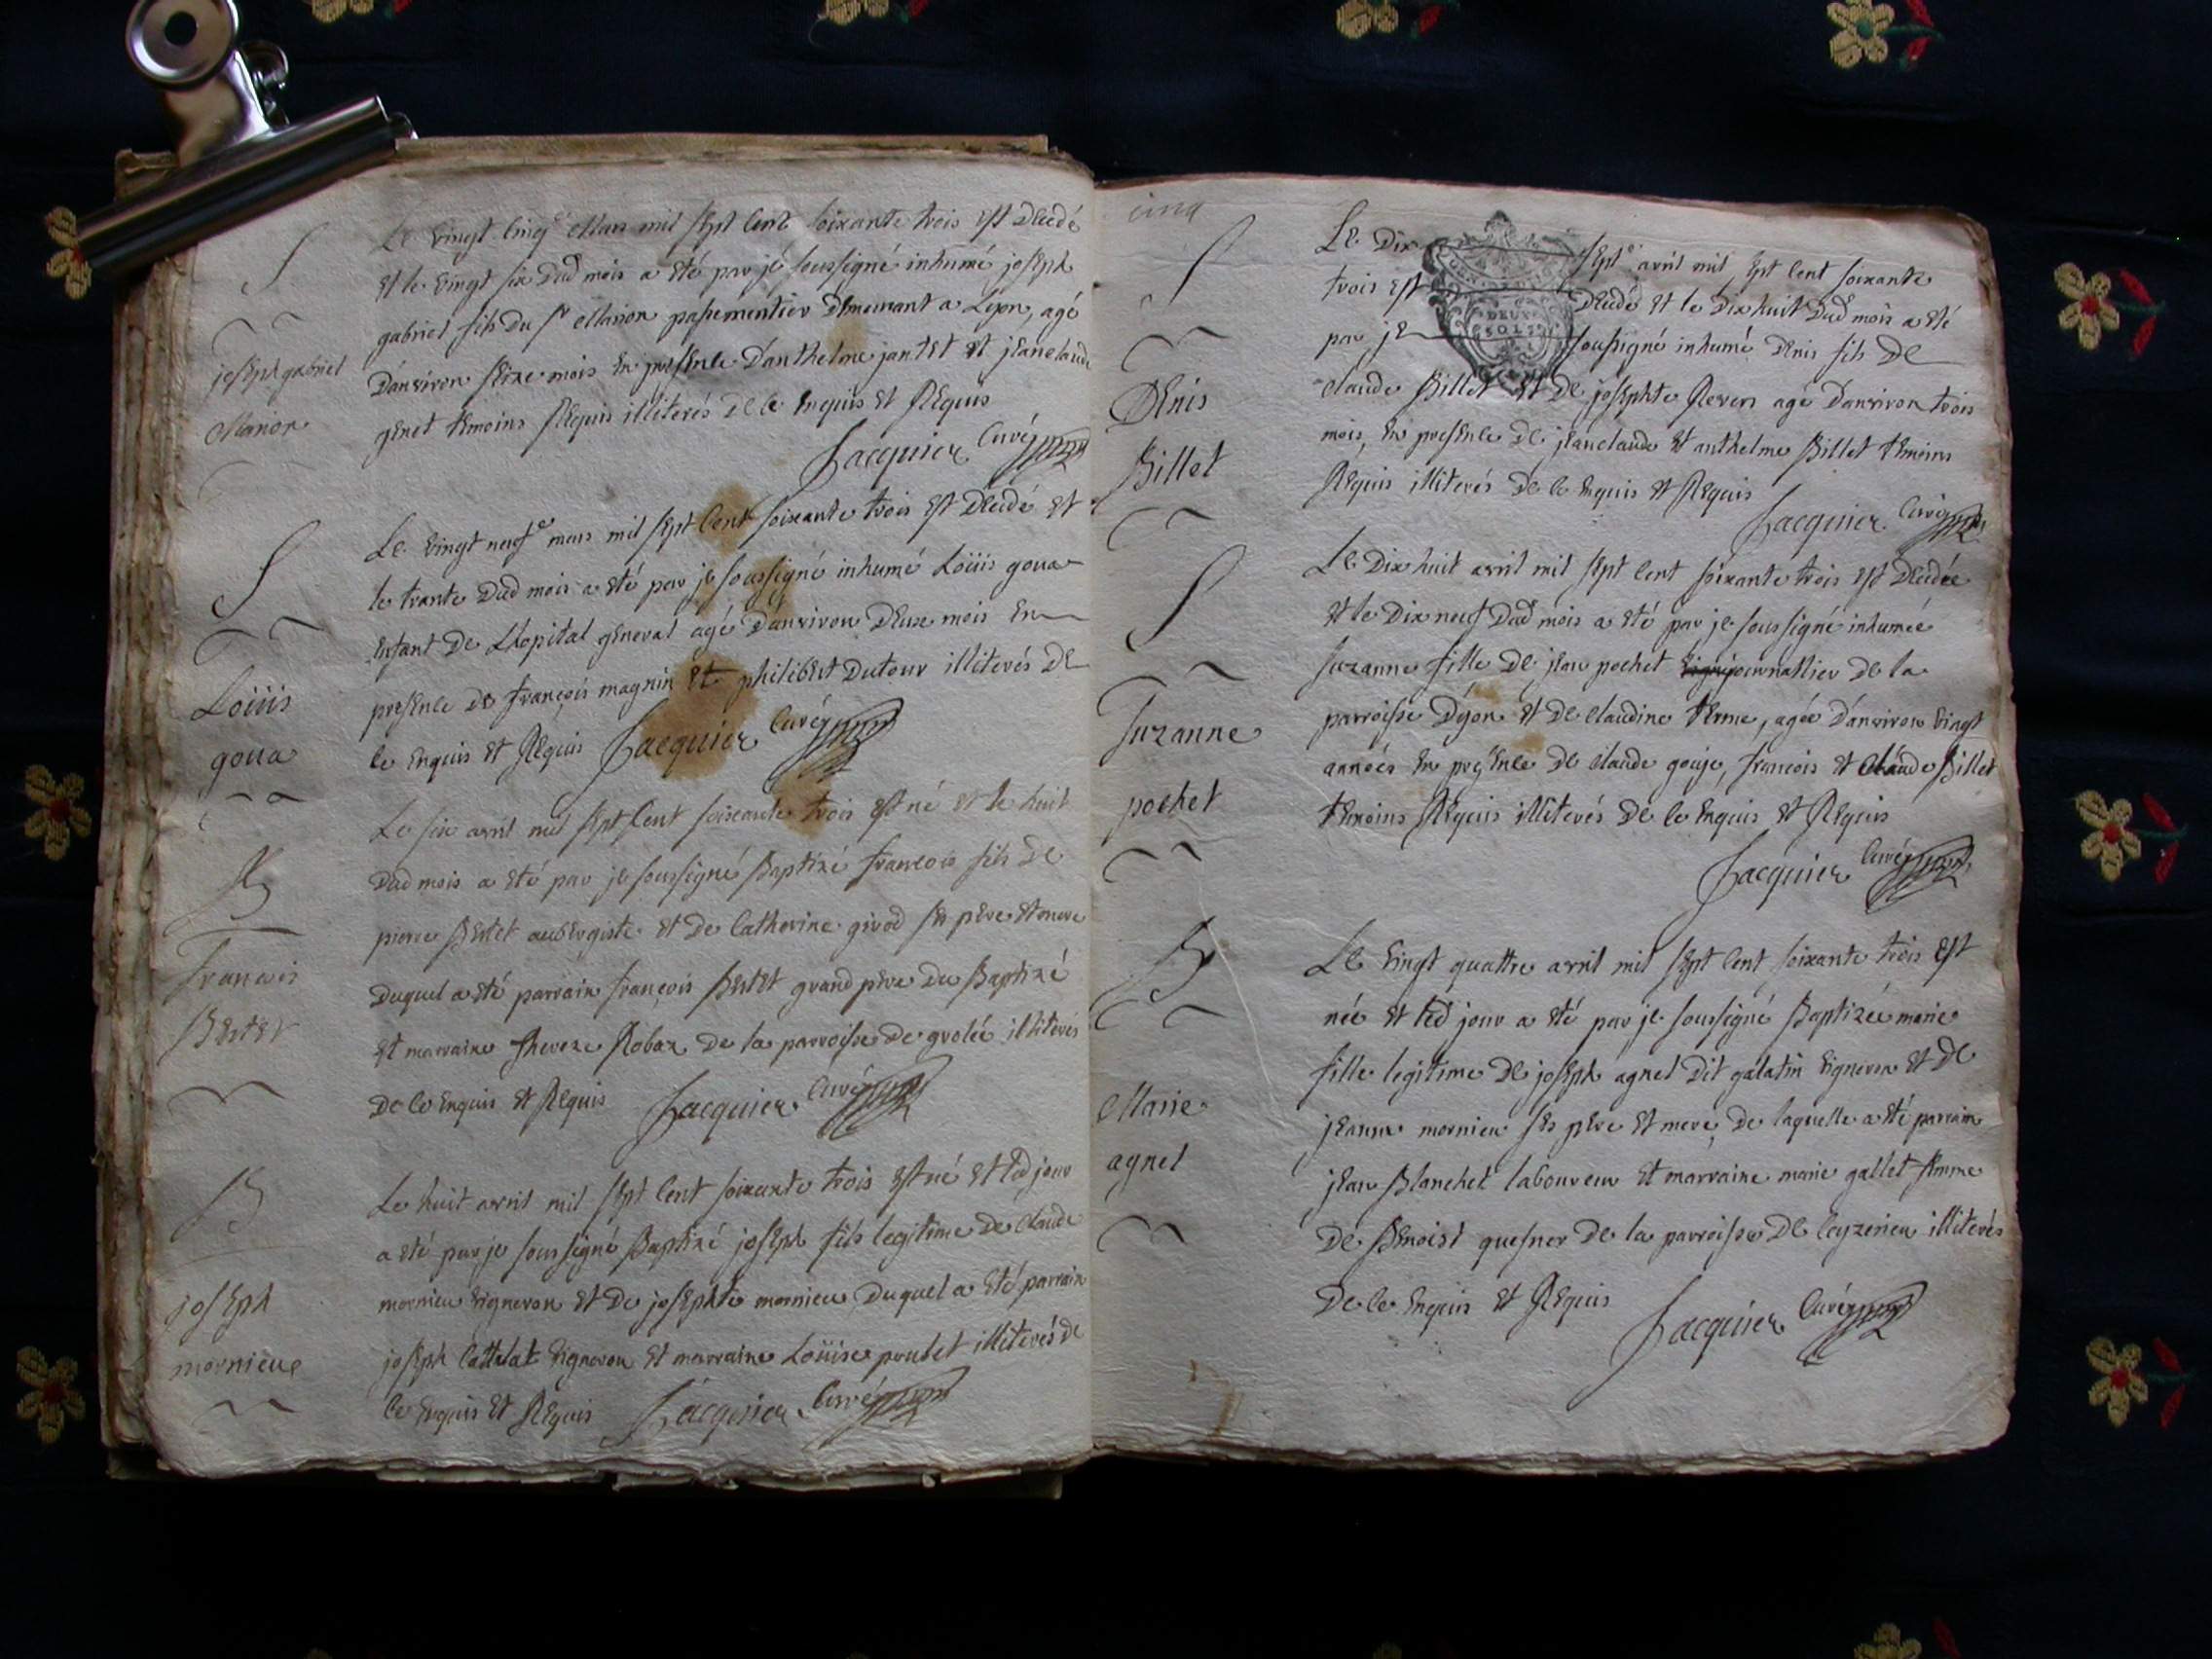 S
joseph gabriel
Marion
Le vingt cinq Mars mil sept cent soixante trois est decedé
et le vingt six dud mois a eté par je soussigné inhumé joseph
gabriel fils du sr Marion passementier demeurant a Lyon, agé
d'anviron seize mois en presence d'anthelme jantet et jeanclaude
genet temoins requis illiterés de ce enquis et requis
Jacquier Curé
S
Loüis
goua
Le vingt neuf mars mil sept cent soixante trois est decedé et
le trante dud mois a eté par je soussigné inhumé Loüis goua
enfant de L'hopital general agé d'anviron deux mois en
presence de françois magnin et philibert Dutour illiterés de
ce enquis et requis Jacquier Curé
B
francois
Bertet
Le six avril mil sept cent soixante trois est né et le huit
dud mois a eté par je soussigné Baptizé francois fils de
pierre Bertet aubergiste et de Catherine girod ses pere et mere
duquel a eté parrain françois Bertet grand pere du Baptizé
et marraine Thereze Robaz de la parroisse de grolée illiterés
de ce enquis et requis Jacquier Curé
B
joseph
mornieue
Le huit avril mil sept cent soixante trois est né et led jour
a eté par je soussigné Baptizé joseph fils legitime de claude
mornieu vigneron et de josephte mornieu duquel a eté parrain
joseph Cattelat vigneron et marraine Loüise poulet illiterés de
ce enquis et requis Jacquier Curé
cinq
S
Denis
Billet
Le Dix sept avril mil sept cent soixante
trois est decedé et le dix huit dud mois a eté
par je soussigné inhumé denis fils de
claude Billet et de josephte Reven agé d'anviron trois
mois, en presence de jeanclaude et anthelme Billet temoins
requis illiterés de ce enquis et requis
Jacquier Curé
DEUX
SOLS
S
Suzanne
pochet
Le Dix huit avril mil sept cent soixante trois est decedée
et le dix neuf dud mois a eté par je soussigné inhumée
suzanne fille de jean pochet journallier de la
parroisse d'yon et de claudine terme, agée d'anviron vingt
années en presence de claude gouje, francois et claude Billet
temoins requis illiterés de ce enquis et requis
Jacquier Curé
B
Marie
agnel
Le vingt quattre avril mil sept cent soixante trois est
née et led jour a eté par je soussigné Baptizée marie
fille legitime de joseph agnel dit galatin vigneron et de
jeanne mornieu ses pere et mere, de laquelle a eté parrain
jean Blanchet laboureur et marraine marie gallet femme
de Benoist quesner de la parroisse de ceyzerieu illiterés
de ce enquis et requis Jacquier Curé